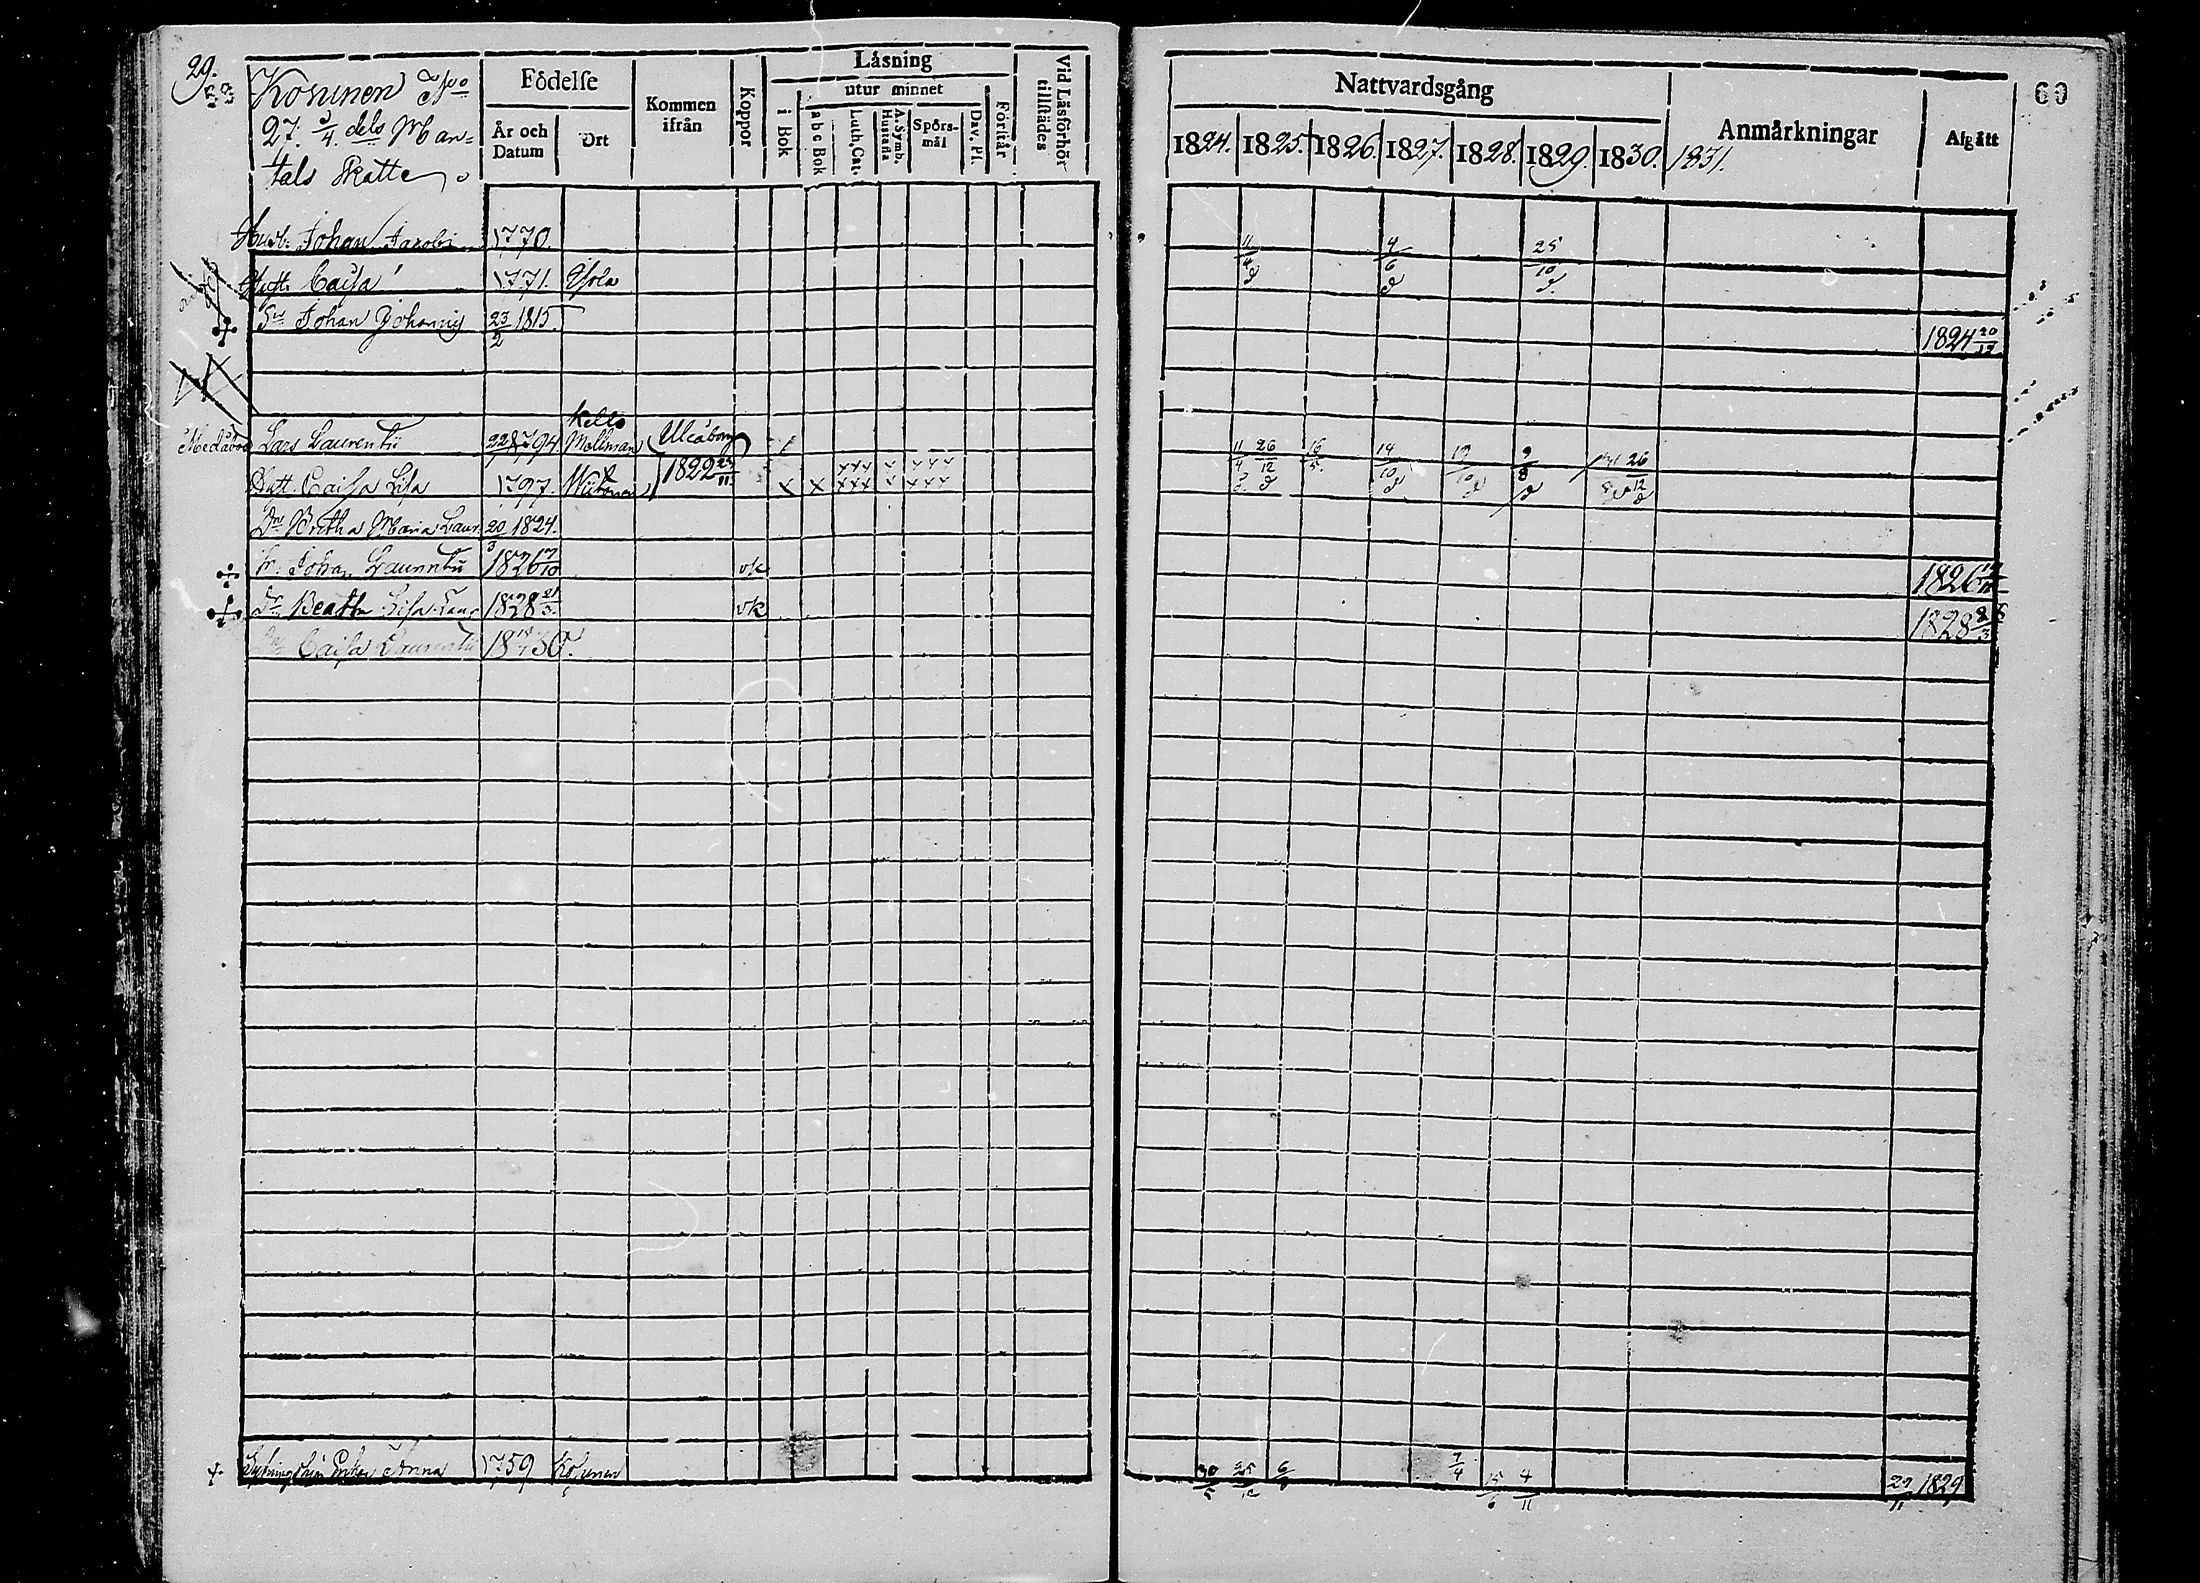 29. 53
Kosunen No
27. 3/4 dels Man=
tals Skatte
Födelse
År och Datum
Ort
Kommen ifrån
Koppor
Läsning
utur minnet
i Bok
abc Bok
Luth. Cat.
A. Symb. Hustafla
Spörs-mål
Dav. Ps.
Förstår
Vid Läsförhör tillstädes
Nattvardsgång
1824. 1825. 1826. 1827. 1828. 1829. 1830. 1831.
Anmärkningar
Afgått
60
Husb. Johan Jacobi 1770. 11/4 4/6 25/10
Hust. Caisa 1771.
Sn Johan Johannis 23/2 1815. 1824 20/12
Kello
Lars Laurentii 22/8 1794. Mollman Uleåborg 11/4 26/12 16/5 14/10 9/8 26/12
Hust. Caisa Lisa 1797. 1822 23/11
Dr Britha Maria Laur. 20/3 1824.
Sn Johan Laurentii 1826 17/10 vk 1826
Dr Beatha Lisa Laur. 1828 21/3 vk 1828
Dr Caisa Laurentii 1830.
Anna 1759 Kosunen 30/5 7/4 15/6 4/11 29/11 1829